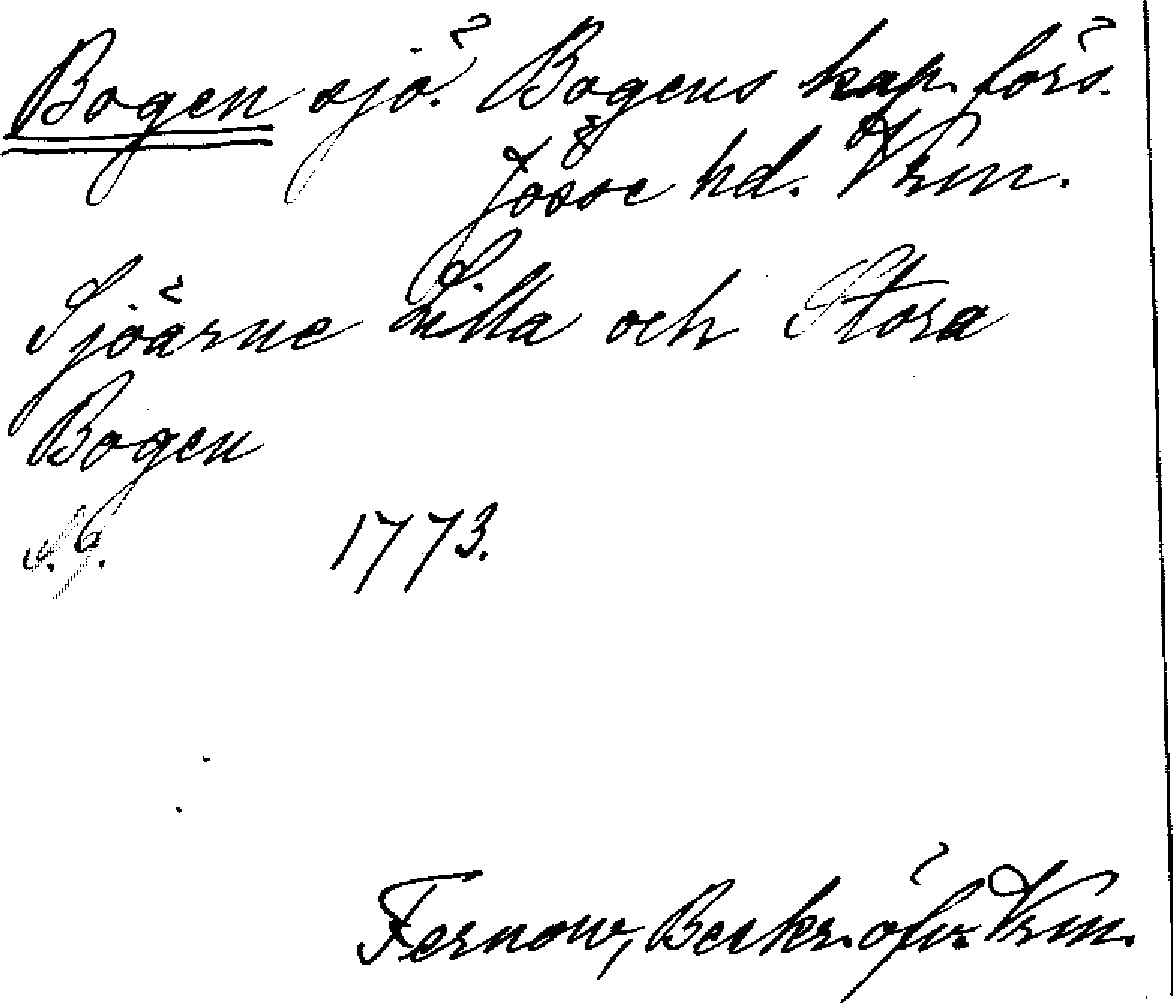 Bogen sjö. Bogens kap. förs.
Jösse hd. Vrm.
Sjöarne Lilla och Stora
Bogen
1773.
Fernow, Beskr. öfv. Vrm.